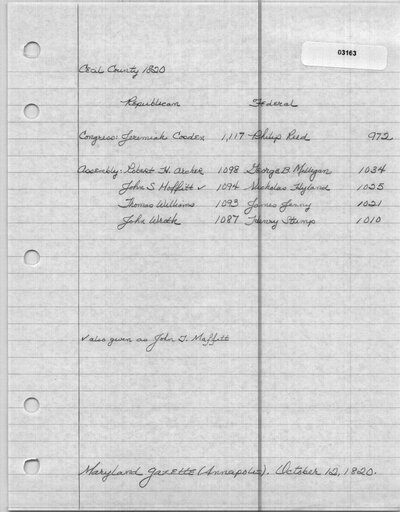 03163
Cecil County 1820
Republican Federal
Congress: Jeremiah Cosden 1,117 Philip Reed 972
Assembly: Robert H. Archer 1098 George B. Milligan 1034
John S. Moffitt ✓ 1094 Nicholas Hyland 1025
Thomas Williams 1093 James Janny 1021
John Wroth 1087 Henry Stump 1010
✓ also given as John T. Moffitt
Maryland Gazette (Annapolis). October 12, 1820.